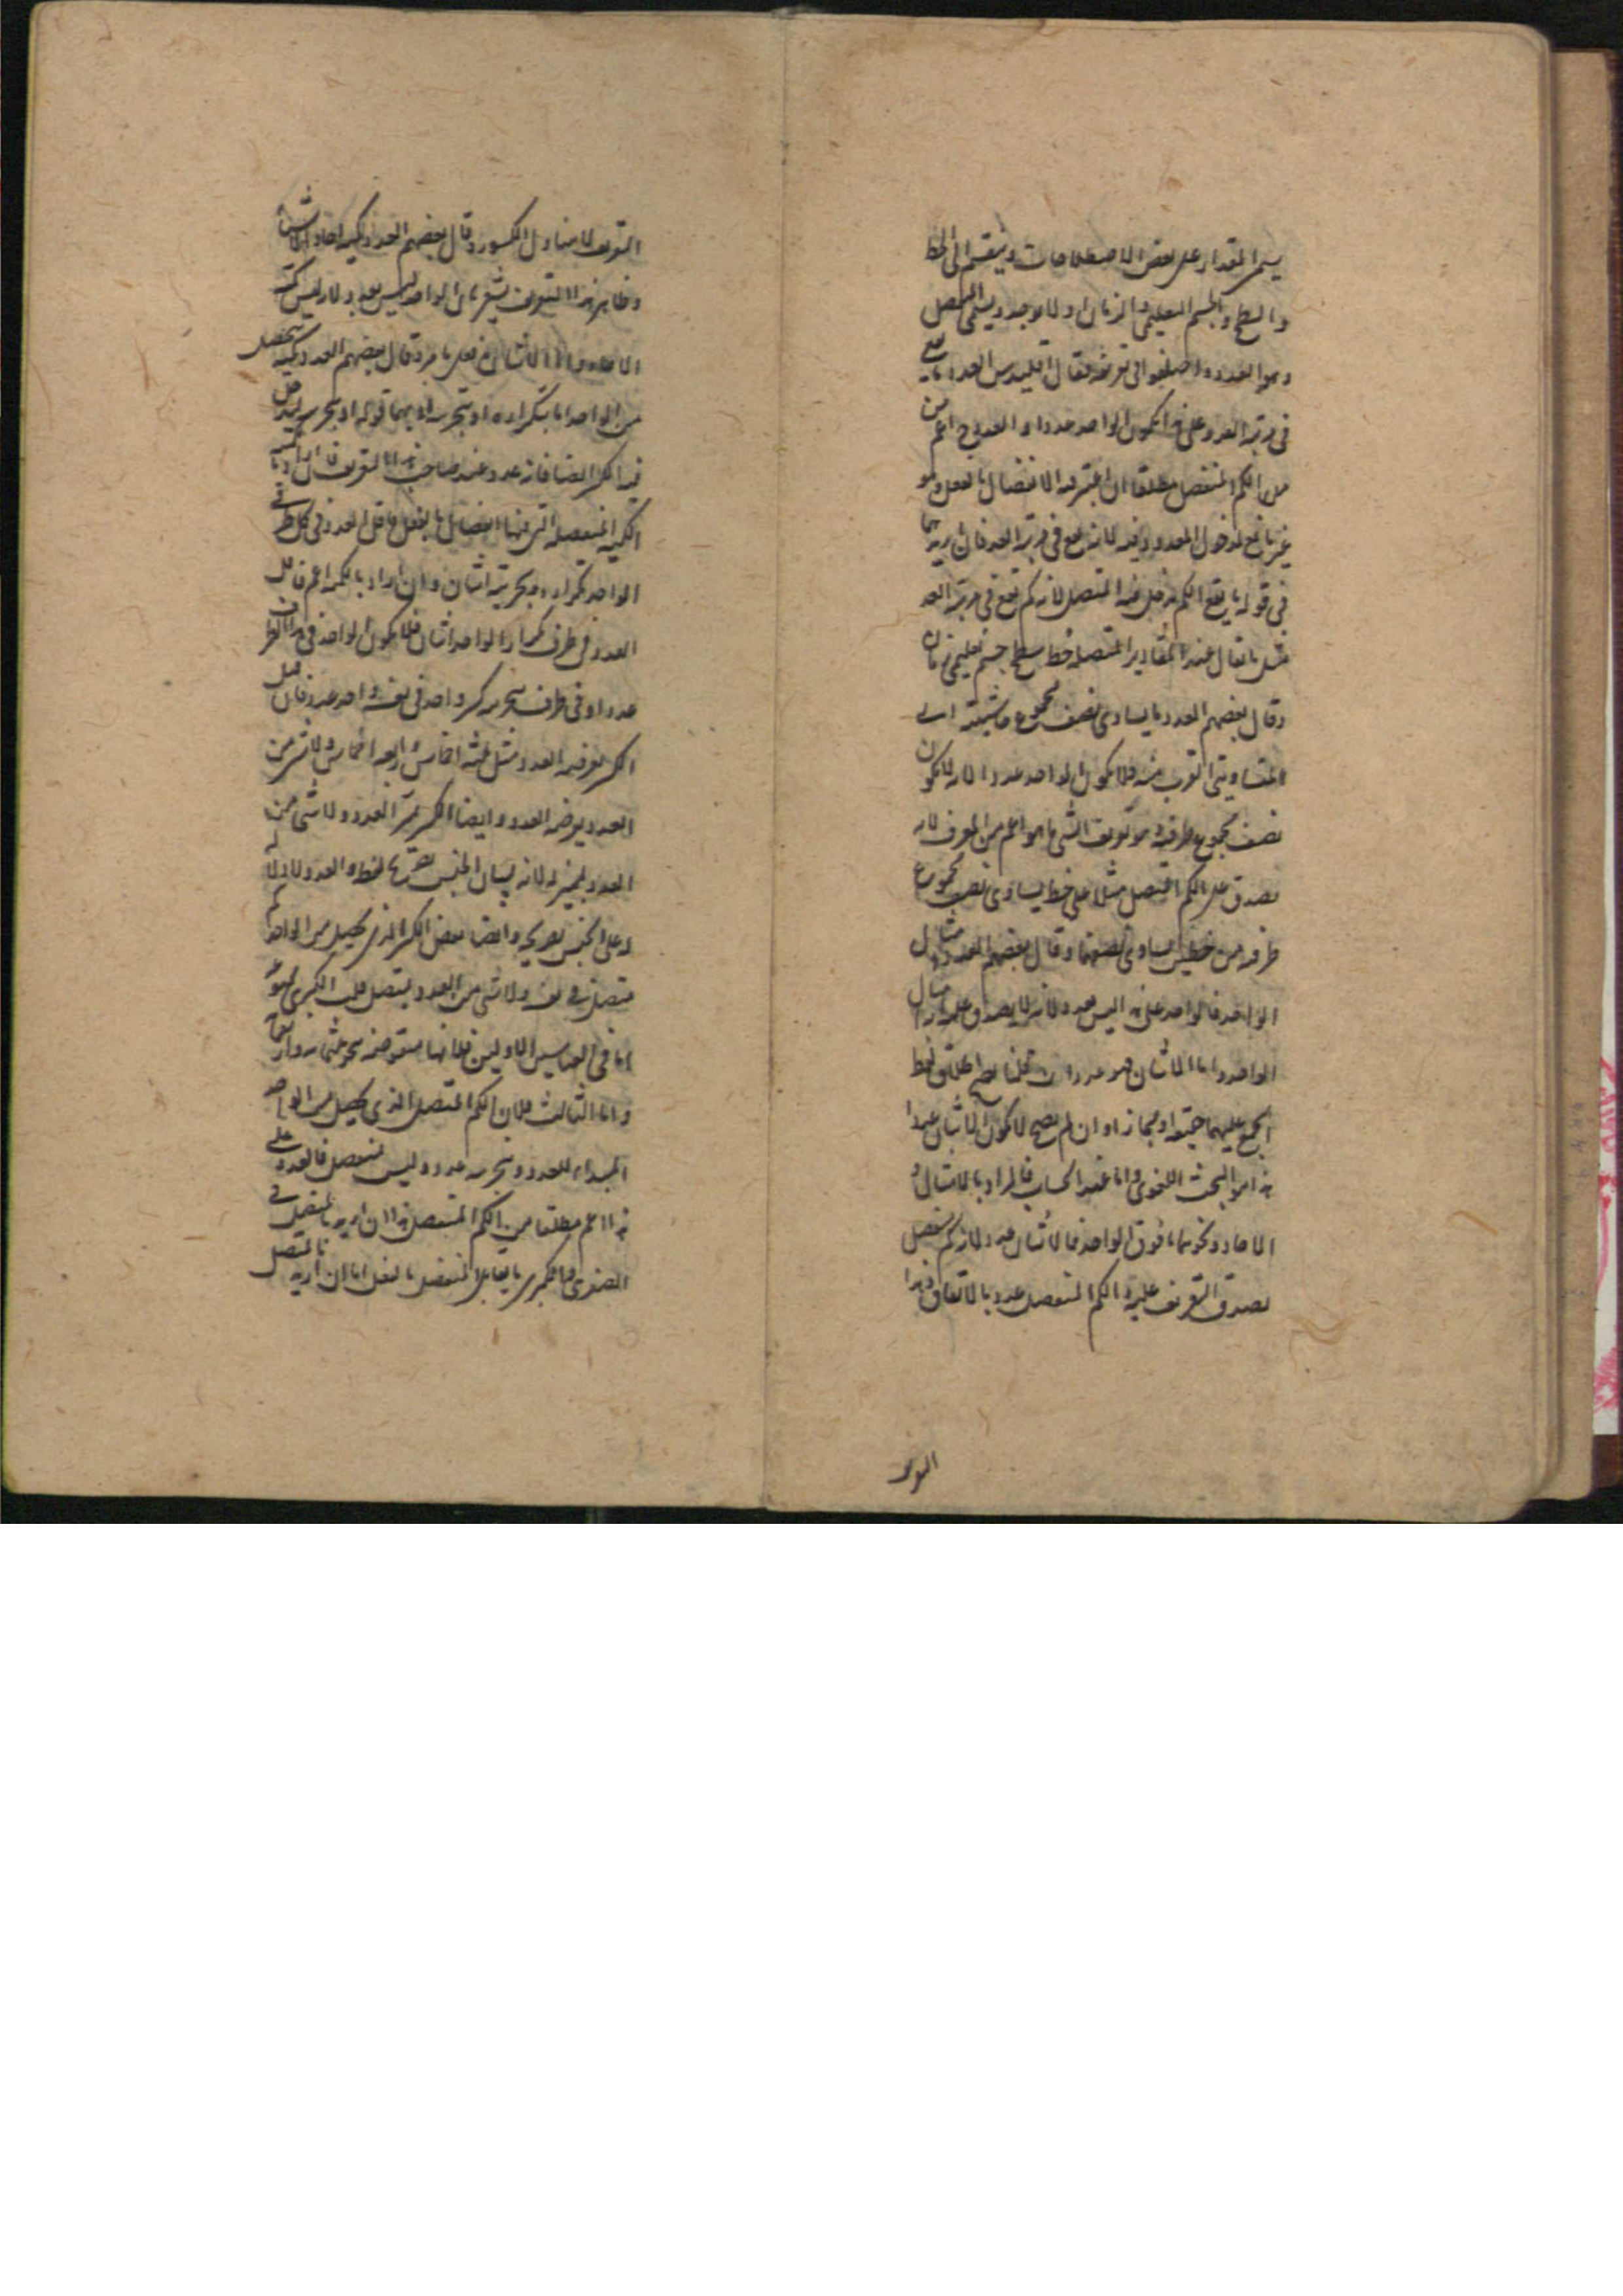 يسمى المقدار على بعض الاصطلاحات وينقسم الى الخط
والسطح والجسم التعليمي والزمان اولا يوجد ويسمى المنفصل
وهو العدد واختلفوا في تعريفه فقال اقليدس العدد ما يقع
في مرتبة العد وعلى هذا يكون الواحد عددا والعدد ح اعم من
من الكم المنفصل مطلقا ان اعتبر فيه الانفصال بالفعل وهو
غير مانع لدخول المعدود فيه لانه يقع في مرتبة العد فان اريد بما
في قوله ما يقع الكم يدخل فيه المتصل لانه كم يقع في مرتبة العد
مثل ما يقال عند المقادير المتصلة خط سطح جسم تعليمي زمان
وقال بعضهم العدد ما يساوي نصف مجموع حاشيتيه اي
المتساويتي القرب منه فلا يكون الواحد عددا لانه لا يكون
نصف مجموع طرفيه وهو تعريف الشي بما هو اعم من المعرف لانه
يصدق على الكم المتصل مثلا على خط يساوي نصف مجموع
طرفيه من خطين يساوي نصفهما وقال بعضهم العدد
الواحد فالواحد على هذا ليس بعدد لانه لا يصدق عليه
الواحد واما الاثنان فهو عدد ان قلنا يصح اطلاق لفظ
الجمع عليهما حقيقة او مجازا وان لم يصح لا يكون الاثنان عددا
هذا هو البحث اللغوي واما عند الحساب فالمراد بالامثال و
الاحاد ونحوهما ما فوق الواحد فالاثنان عدد لانه كم منفصل
يصدق التعريف عليه والكم المنفصل عدد بالاتفاق وهذا
التعريف
التعريف لا يتناول الكسور وقال بعضهم العدد كمية احاد الاشياء
وظاهر هذا التعريف يشعر بان الواحد ليس بعدد لانه ليس كمية
الاحاد واما الاثنان فعلى ما مر وقال بعضهم العدد كمية تحصل
من الواحد اما بتكراره او بتجزيته او بهما قوله او بتجزيته ليدخل
فيه الكسر ايضا فانه عدد عند صاحب هذا التعريف فان اراد بالكمية
الكمية المنفصلة التي فيها انفصال بالفعل فاقل العدد في كل طرفي
الواحد تكراره وتجزيته اثنان وان اراد بالكمية اعم فاقل
العدد في طرف تكرار الواحد اثنان فلا يكون الواحد في هذا الطرف
عددا وفي طرف تجزيته كسر واحد في نفسه واحد عدد فان قيل
الكسر يعرضه العدد مثل ثلثة اخماس واربعة اخماس ولا شي من
العدد يعرضه العدد وايضا الكسر يميز العدد ولا شي من
العدد بمميز له لانه لبيان الجنس
له على الجنس بصريحه وايضا بعض الكسر الذي يحصل من الواحد
متصل في نفسه ولا شي من العدد بمتصل قلت الكبرى ممنوعة
اما في القياسين الاولين فلانها منقوضة بنحو خمسمائة واربعمائة
واما الثالث فلان الكم المتصل الذي يحصل من الواحد
المبداء للعدد وتجزيته عدد وليس بمنفصل فالعدد على
هذا اعم مطلقا من الكم المنفصل هذا ان اريد بالمتصل في
الصغرى والكبرى ما يقابل المنفصل بالفعل اما ان اريد بالمتصل